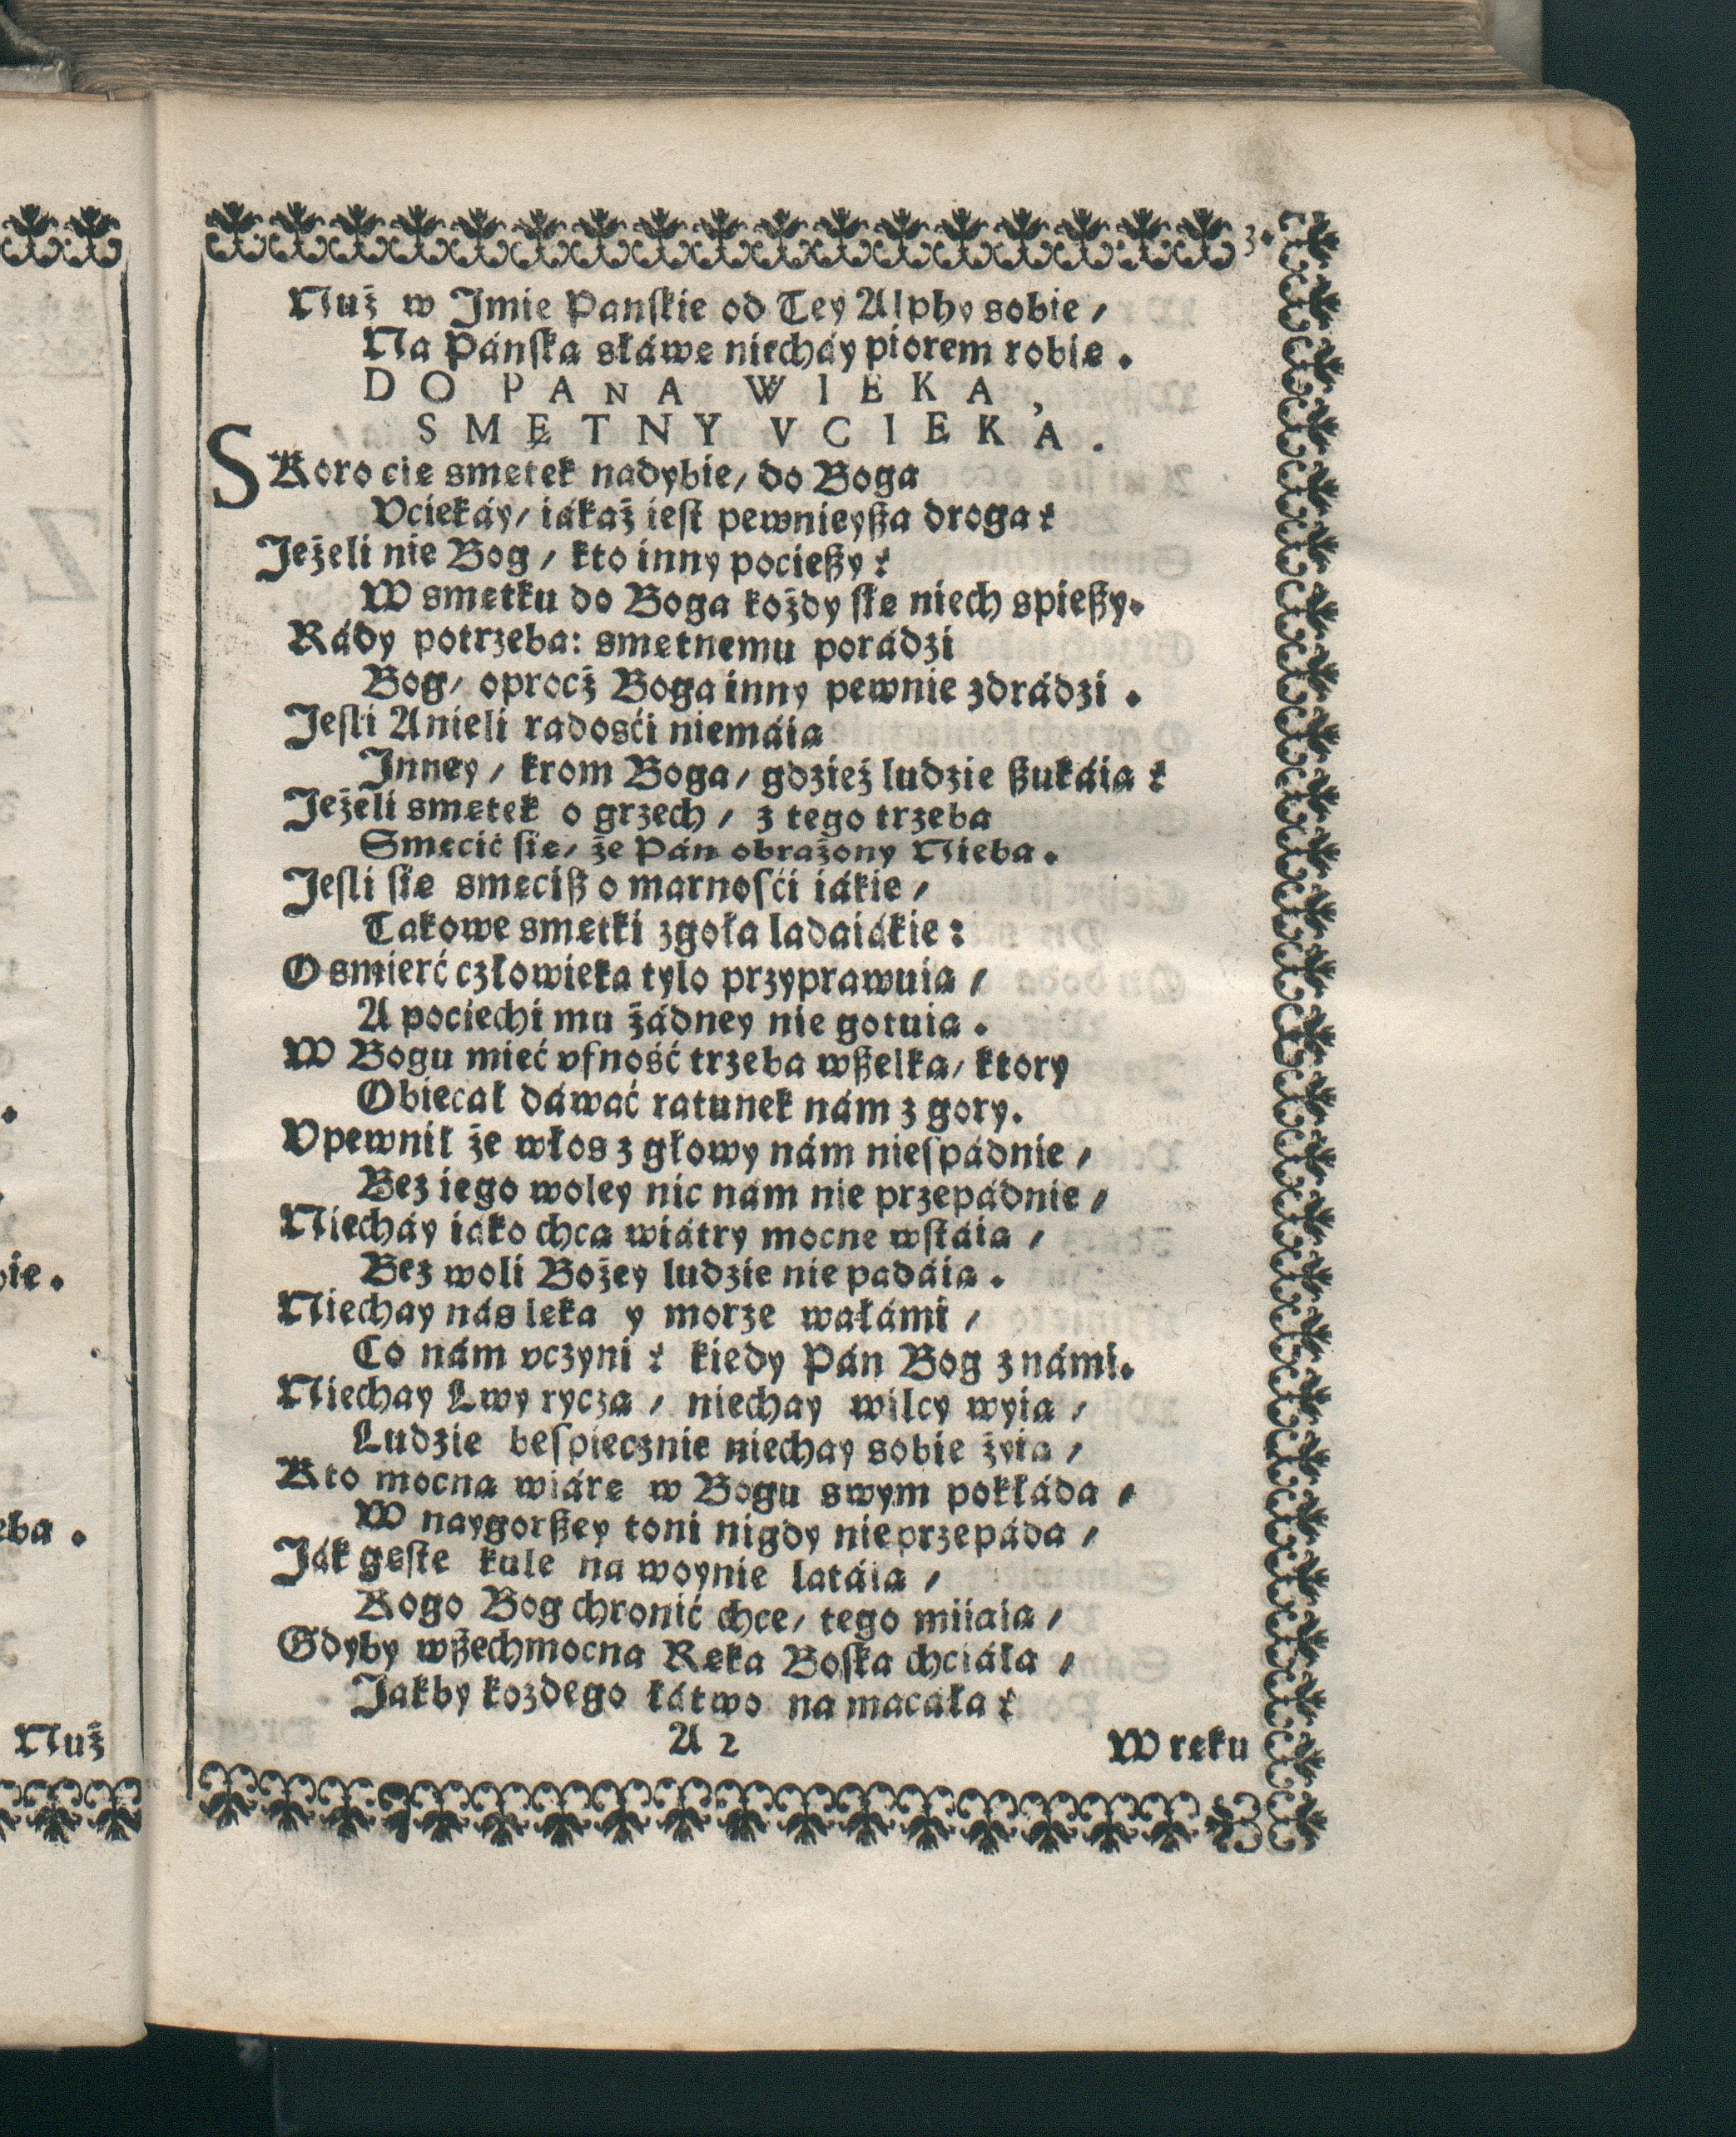 3.
Nuż w Jmie Panſkie od Tey Alphy sobie /
Na Pánſką słáwę niecháy piorem robię .
DO PANA WIEKA ,
SMĘTNY VCIEKA .
SKoro cię smętek nadybie / do Boga
Vciekáy / iákaż ieſt pewnieyßa droga ?
Jeżeli nie Bog / kto inny pocießy ?
W smętku do Boga kożdy ſię niech spießy.
Rády potrzeba: smętnemu porádzi
Bog / oprocż Boga inny pewnie zdrádzi .
Jeſli Anieli radosći niemáią
Inney / krom Boga / gdzież ludzie ßukáią ?
Jeżeli smętek o grzech / z tego trzeba
Smęcić ſię / że Pán obrażony Nieba .
Jeſli ſię smęciß o marnoſći iákie /
Takowe smętki zgoła ladaiákie :
O smierć człowieka tylo przyprawuią /
A pociechi mu żádney nie gotuią .
W Bogu mieć vfność trzeba wßelką / ktory
Obiecał dáwáć ratunek nám z gory.
Vpewnił że włos z głowy nám nieſpádnie /
Bez iego woley nic nám nie przepádnie /
Niecháy iáko chcą wiátry mocne wſtáią /
Bez woli Bożey ludzie nie padáią .
Niechay nás lęka y morze wałámi /
Co nám vczyni ? kiedy Pán Bog z námi.
Niechay Lwy ryczą / niechay wilcy wyią /
Ludzie beſpiecznie niechay sobie żyią /
Kto mocną wiárę w Bogu swym pokłáda /
W naygorßey toni nigdy nieprzepáda /
Ják gęſte kule na woynie latáią /
Kogo Bog chronić chce / tego miiaią /
Gdyby wßechmocna Ręka Boſka chciáła /
Jakby kozdego łátwo na macała ?
A 2
W ręku
bie .
eba .
Nuż